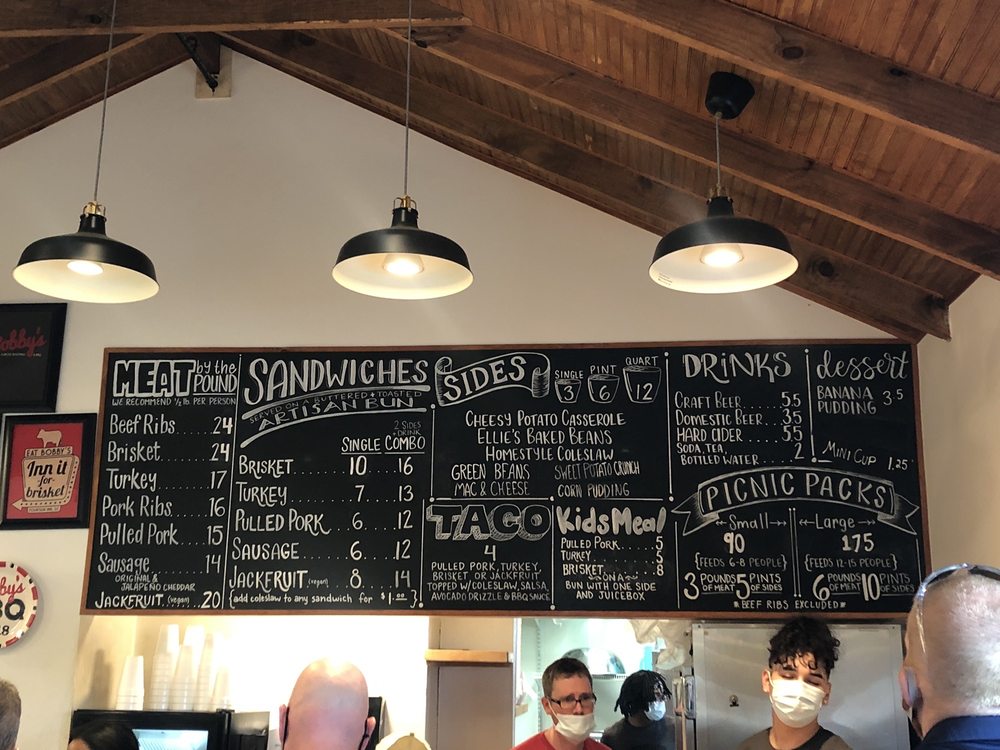 MEAT by the POUND
WE RECOMMEND 1/2 lb. PER PERSON
Beef Ribs 24
Brisket 24
Turkey 17
Pork Ribs 16
Pulled Pork 15
Sausage 14
ORIGINAL &
JALAPEÑO CHEDDAR
JACKFRUIT (vegan) 20
SANDWICHES
SERVED ON A BUTTERED & TOASTED
ARTISAN BUN
2 SIDES
+ DRINK
SINGLE COMBO
BRISKET 10 16
TURKEY 7 13
PULLED PORK 6 12
SAUSAGE 6 12
JACKFRUIT (vegan) 8 14
{add coleslaw to any sandwich for $1.00}
SIDES
SINGLE 3
PINT 6
QUART 12
CHEESY POTATO CASSEROLE
ELLIE'S BAKED BEANS
HOMESTYLE COLESLAW
GREEN BEANS SWEET POTATO CRUNCH
MAC & CHEESE CORN PUDDING
TACO
4
PULLED PORK, TURKEY,
BRISKET OR JACKFRUIT
TOPPED W/ COLESLAW, SALSA
AVOCADO DRIZZLE & BBQ SAUCE
Kids Meal
PULLED PORK 5
TURKEY 5
BRISKET 8
ON A
BUN WITH ONE SIDE
AND JUICEBOX
DRINKS
CRAFT BEER 5.5
DOMESTIC BEER 3.5
HARD CIDER 5.5
SODA, TEA,
BOTTLED WATER 2
dessert
BANANA
PUDDING 3.5
MINI CUP 1.25
PICNIC PACKS
Small
90
{FEEDS 6-8 PEOPLE}
3 POUNDS OF MEAT 5 PINTS OF SIDES
Large
175
{FEEDS 12-15 PEOPLE}
6 POUNDS OF MEAT 10 PINTS OF SIDES
* BEEF RIBS EXCLUDED *
Bobby's
EAT BOBBY'S
Inn it
for
brisket
BBQ